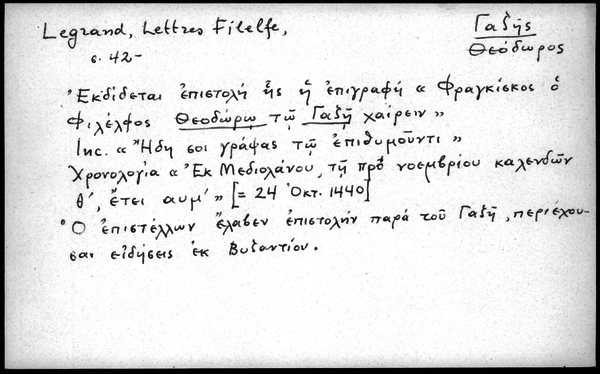 Legrand, Lettres Filelfe,
Γαζῆς
Θεόδωρος
σ. 42-
Ἐκδίδεται ἐπιστολή ἧς ἡ ἐπιγραφή « Φραγκίσκος ὁ
Φιλέλφος Θεοδώρῳ τῷ Γαζῇ χαίρειν »
Inc. « Ἤδη σοι γράψας τῷ ἐπιθυμοῦντι »
Χρονολογία « Ἐκ Μεδιολάνου, τῇ πρὸ νοεμβρίου καλενδῶν
θ', ἔτει αυμ' » [= 24 Ὀκτ. 1440]
Ὁ ἐπιστέλλων ἔλαβεν ἐπιστολήν παρά τοῦ Γαζῆ, περιέχου-
σαι εἰδήσεις ἐκ Βυζαντίου.